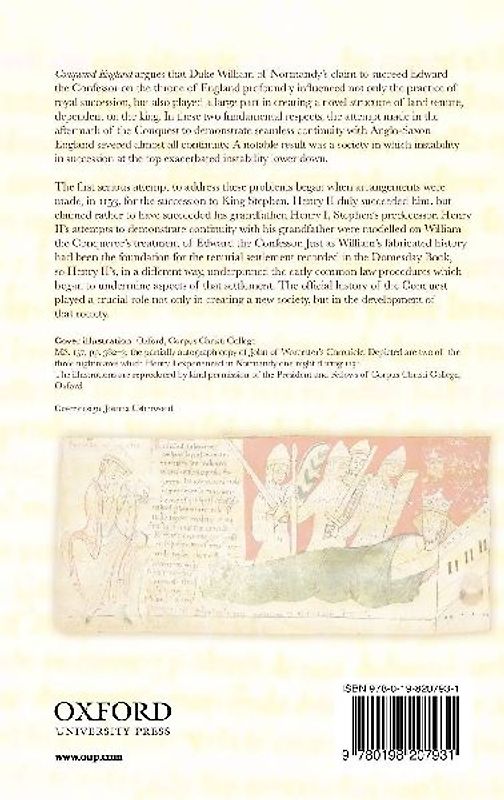 Conquered England argues that Duke William of Normandy's claim to succeed Edward
the Confessor on the throne of England profoundly influenced not only the practice of
royal succession, but also played a large part in creating a novel structure of land tenure,
dependent on the king. In these two fundamental respects, the attempt made in the
aftermath of the Conquest to demonstrate seamless continuity with Anglo-Saxon
England severed almost all continuity. A notable result was a society in which instability
in succession at the top exacerbated instability lower down.
The first serious attempt to address these problems began when arrangements were
made, in 1153, for the succession to King Stephen. Henry II duly succeeded him, but
claimed rather to have succeeded his grandfather, Henry I, Stephen's predecessor. Henry
II's attempts to demonstrate continuity with his grandfather were modelled on William
the Conqueror's treatment of Edward the Confessor. Just as William's fabricated history
had been the foundation for the tenurial settlement recorded in the Domesday Book,
so Henry II's, in a different way, underpinned the early common law procedures which
began to undermine aspects of that settlement. The official history of the Conquest
played a crucial role not only in creating a new society, but in the development of
that society.
Cover illustration: Oxford, Corpus Christi College
MS. 157, pp. 382-3, the partially autograph copy of John of Worcester's Chronicle. Depicted are two of the
three nightmares which Henry I experienced in Normandy one night during
The illustrations are reproduced by kind permission of the President and Fellows of Corpus Christi College,
Oxford
Cover design
ISBN 978-0-19-820793-1
OXFORD
UNIVERSITY PRESS
www.oup.com
9 780198 207931